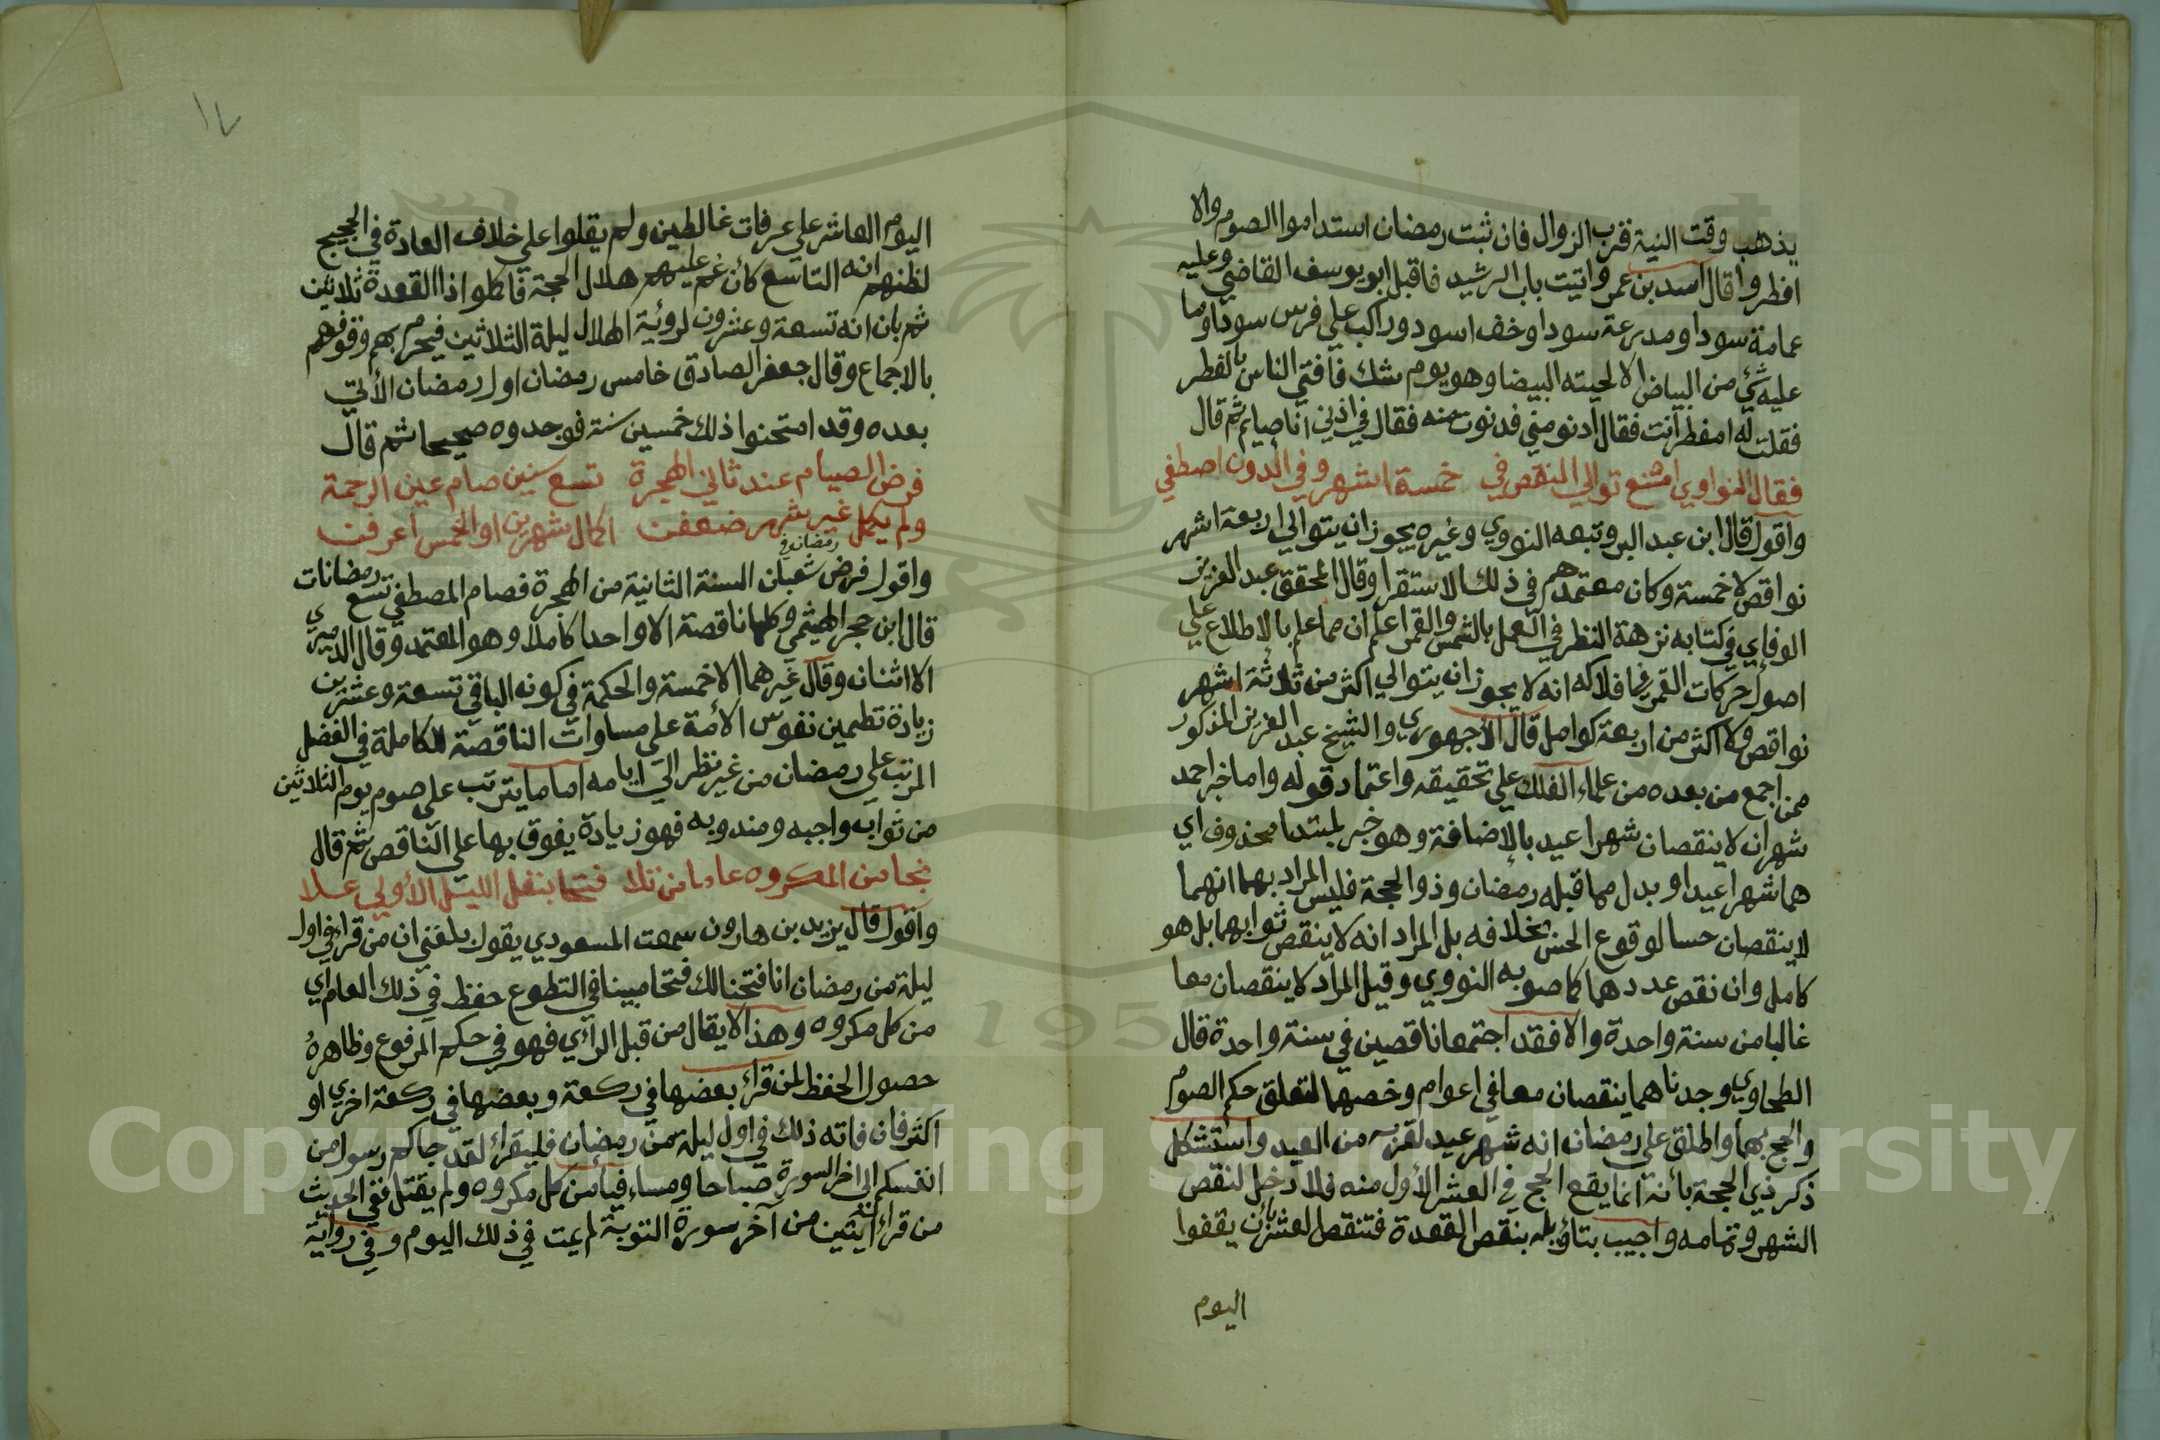 يذهب وقت النية قرب الزوال فان ثبت رمضان استداموا الصوم والا
افطروا قال اسد بن عمرو اتيت باب الرشيد فاقبل ابو يوسف القاضي وعليه
عمامة سودا ومدرعة سودا وخف اسود وراكب علي فرس سودا وما
عليه شئ من البياض الا لحيته البيضا وهو يوم شك فافتي الناس بالفطر
فقلت له امفطر انت فقال ادنو مني فدنوت منه فقال في اذني انا صايم ثم قال
فقال النواوي امتنع توالي النقص في خمسة اشهر وفي الدون اصطفي
واقول قال ابن عبد البر وتبعه النووي وغيره يجوز ان يتوالي اربعة اشهر
نواقص لا خمسة وكان معتمدهم في ذلك الاستقرا وقال المحقق عبد العزيز
الوفاي في كتابه نزهة النظر في العمل بالشمس والقمر اعلم ان مما علم بالاطلاع علي
اصول حركات القمر في افلاكه انه لا يجوز ان يتوالي اكثر من ثلاثة اشهر
نواقص ولا اكثر من اربعة كوامل قال الاجهوري والشيخ عبد العزيز المذكور
ممن اجمع من بعده من علماء الفلك علي تحقيقه واعتماد قوله واما خبر احمد
شهران لا ينقصان شهرا عيد بالاضافة وهو خبر لمبتدا محذوف اي
هما شهرا عيد او بدل مما قبله رمضان وذو الحجة فليس المراد بهما انهما
لا ينقصان حسا لوقوع الحس بخلافه بل المراد انه لا ينقص ثوابهما بل هو
كامل وان نقص عددهما كما صوبه النووي وقيل المراد لا ينقصان معا
غالبا من سنة واحدة والا فقد اجتمعا ناقصين في سنة واحدة قال
الطحاوي وجدناهما ينقصان معا في اعوام وخصهما لتعلق حكم الصوم
والحج بهما واطلق علي رمضان انه شهر عيد لقربه من العيد واستشكل
ذكر ذي الحجة بأنه انما يقع الحج في العشر الأول منه فلا دخل لنقص
الشهر وتمامه واجيب بتاؤيله بنقص القعدة فتنقص العشر بأن يقفوا
اليوم
١٧
اليوم العاشر علي عرفات غالطين ولم يقلوا علي خلاف العادة في الحجيج
لظنهم انه التاسع كان غم عليهم هلال الحجة فاكملوا ذا القعدة ثلاثين
ثم بان انه تسعة وعشرون لرؤية الهلال ليلة الثلاثين فيجزيهم وقوفهم
بالاجماع وقال جعفر الصادق خامس رمضان اول رمضان الأتي
بعده وقد امتحنوا ذلك خمسين سنة فوجدوه صحيحا ثم قال
فرض الصيام عند ثاني الهجرة تسع سنين صام عين الرحمة
ولم يكمل غير شهر ضعفت اكمال شهرين او الخمس اعرفت
واقول فرض رمضان في شعبان السنة الثانية من الهجرة فصام المصطفي تسع رمضانات
قال ابن حجر الهيثمي وكلها ناقصة الا واحدا كاملا وهو المعتمد وقال الدميري
الا اثنان وقال غيرهما الا خمسة والحكمة في كونه الباقي تسعة وعشرين
زيادة تطمين نفوس الامة علي مساوات الناقصة للكاملة في الفضل
المرتب علي رمضان من غير نظر الي ايامه اما ما يترتب علي صوم يوم الثلاثين
من ثواب واجبه ومندوبه فهو زيادة يفوق بها علي الناقص ثم قال
نجا من المكروه عاما من تلا فتحا بنفل الليل الأولي علا
واقول قال يزيد بن هارون سمعت المسعودي يقول بلغني ان من قرا في اول
ليلة من رمضان انا فتحنا لك فتحا مبينا في التطوع حفظ في ذلك العام اي
من كل مكروه وهذا لا يقال من قبل الرأي فهو في حكم المرفوع وظاهره
حصول الحفظ لمن قرأ بعضها في ركعة وبعضها في ركعة اخري او
اكثر فان فاته ذلك في اول ليلة من رمضان فليقرا لقد جاكم رسول من
انفسكم الي اخر السورة صباحا ومساء فيأمن كل مكروه ولم يقتل ففي الحديث
من قرأ ايتين من آخر سورة التوبة لم يمت في ذلك اليوم وفي رواية